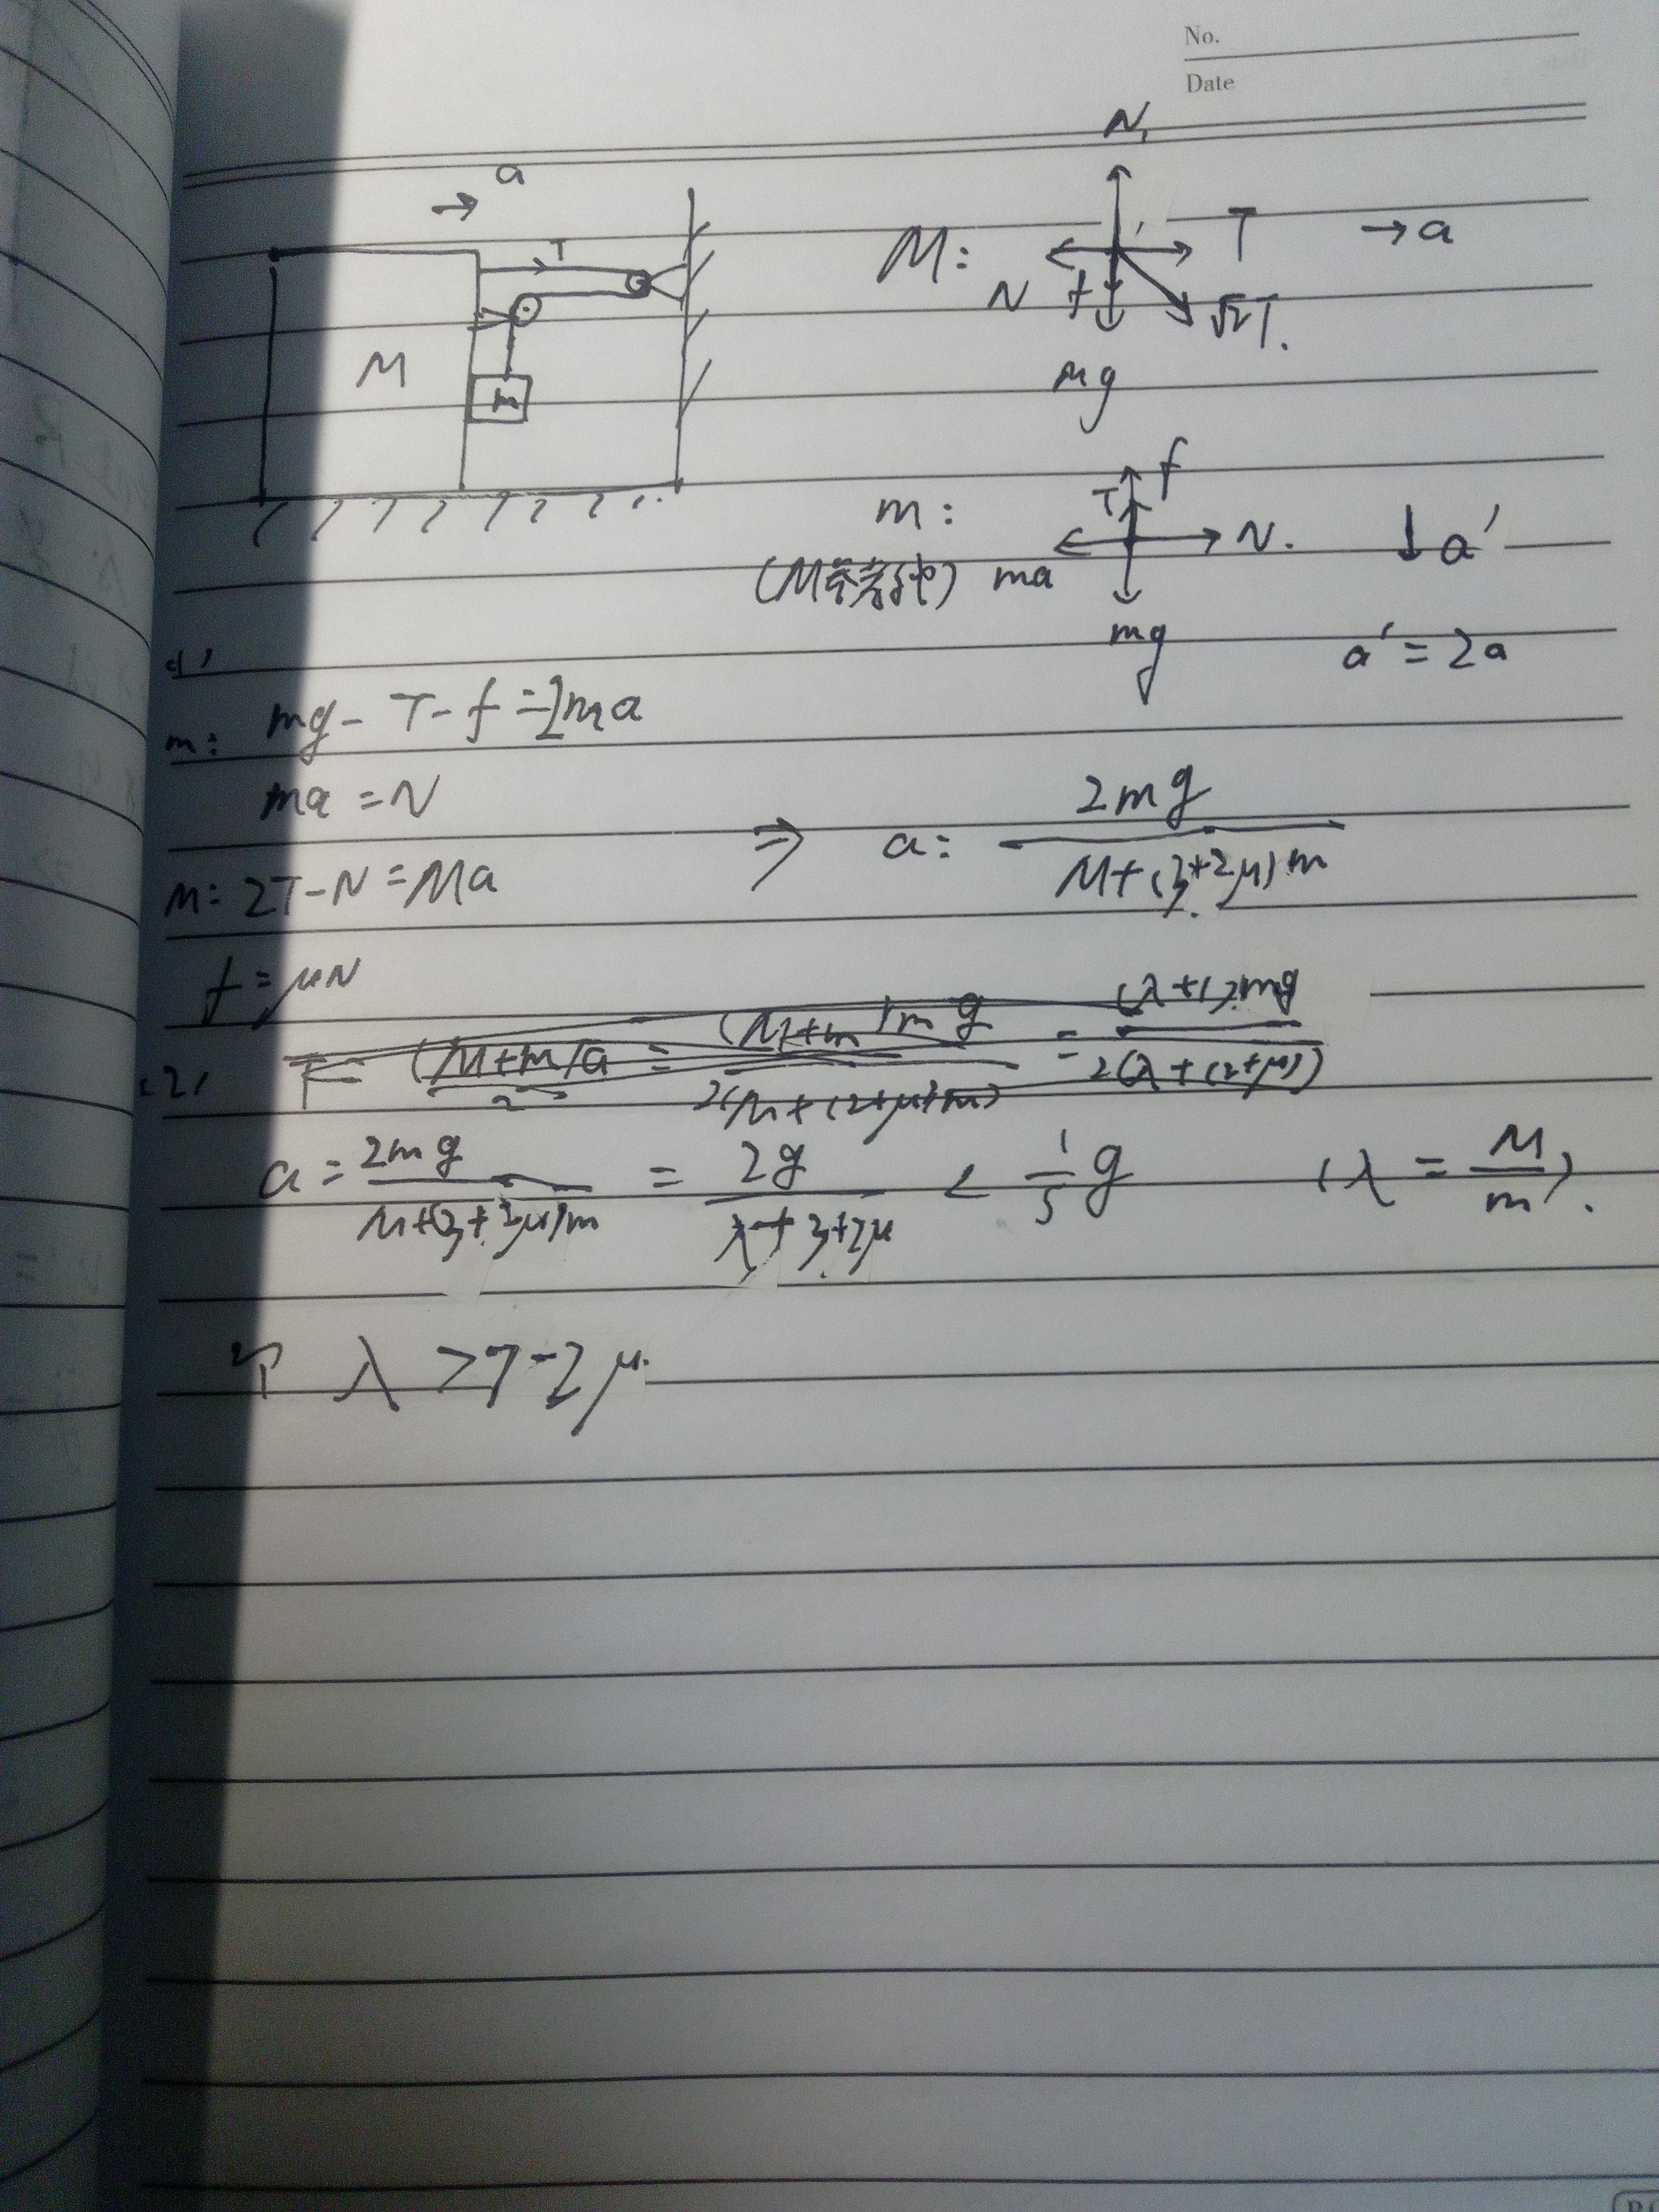 No.
Date
a
T
M
m
M:
N₁
T
→ a
N
f
√2T.
Mg
m:
(M参考系)
f
T
N.
ma
mg
↓ a'
a' = 2a
(1)
m: mg - T - f = 2ma
ma = N
M: 2T - N = Ma
f = μN
⇒ a = 2mg / (M+(3+2μ)m)
(2) T = (M+m)a / 2 = (M+m)mg / 2(M+(2+μ)m) = (λ+1)mg / 2(λ+(2+μ))
a = 2mg / (M+(3+2μ)m) = 2g / (λ+3+2μ) < 1/5 g (λ = M/m).
λ > 7-2μ.